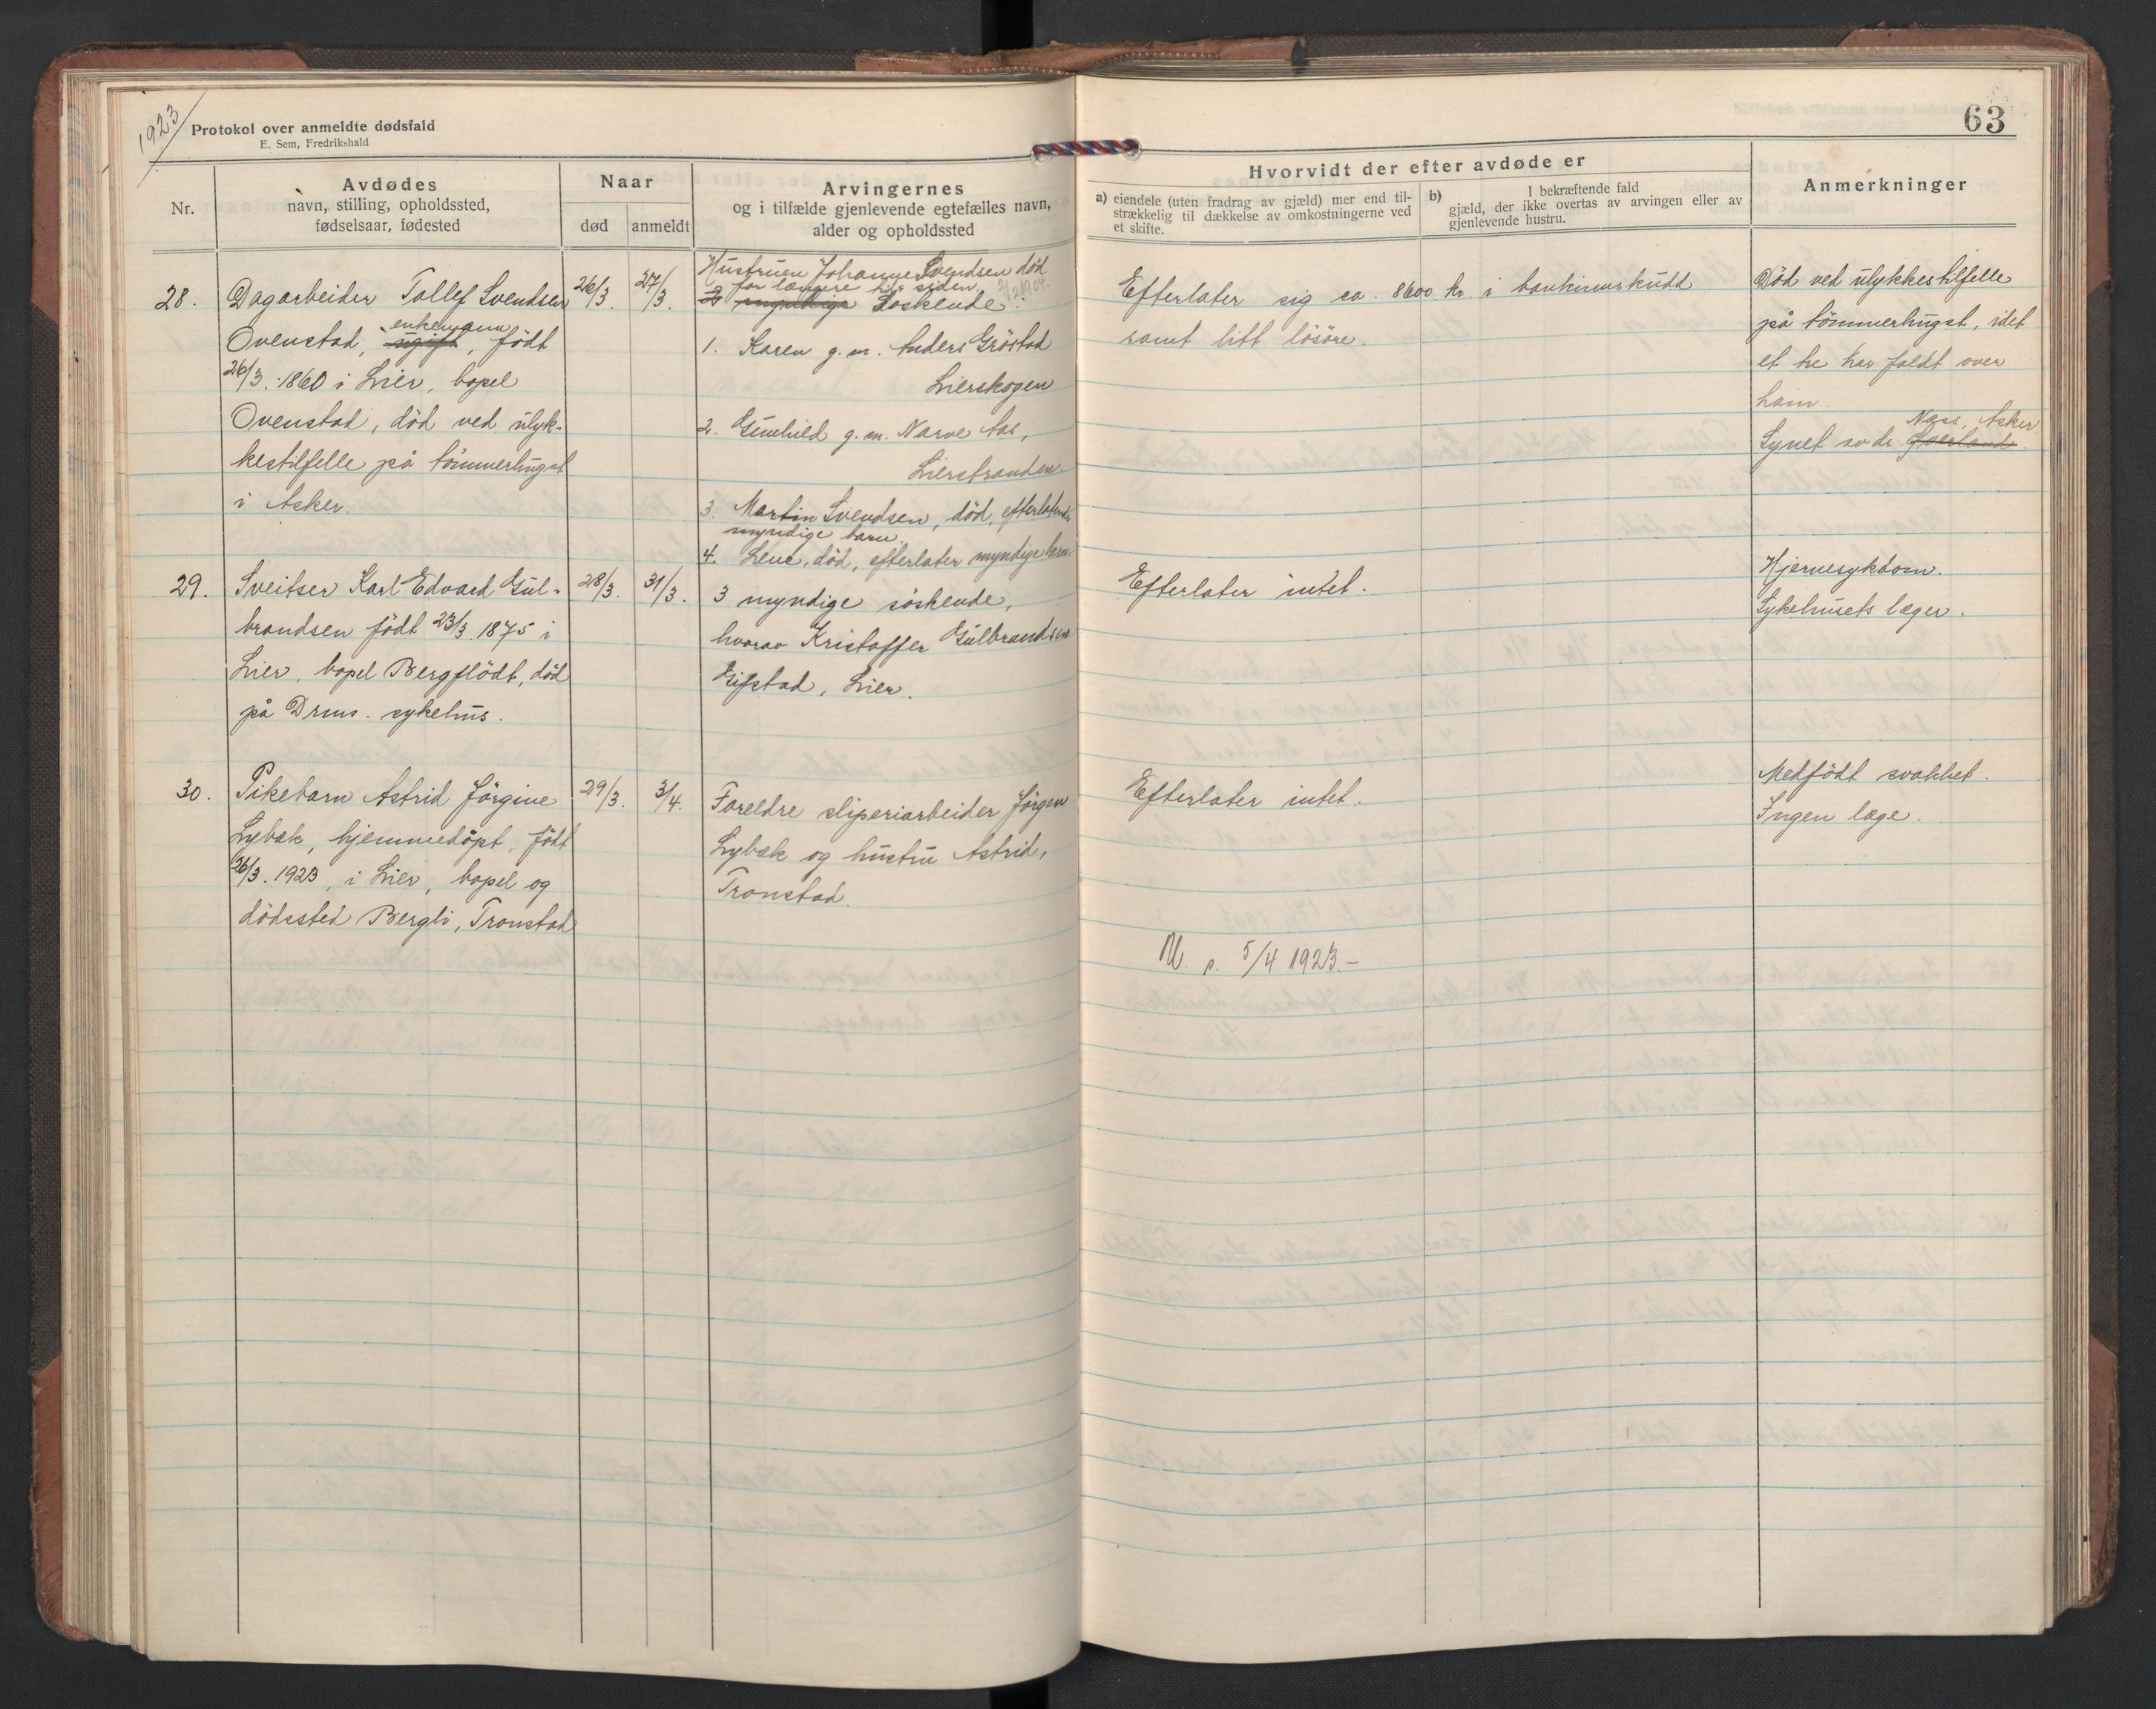 1923
Protokol over anmeldte dødsfald
E. Sem, Fredrikshald
63
Nr.
Avdødes
navn, stilling, opholdssted,
fødselsaar, fødested
Naar
død
anmeldt
Arvingernes
og i tilfælde gjenlevende egtefælles navn,
alder og opholdssted
Hvorvidt der efter avdøde er
a) eiendele (uten fradrag av gjæld) mer end til-
strækkelig til dækkelse av omkostningerne ved
et skifte.
b) I bekræftende fald
gjæld, der ikke overtas av arvingen eller av
gjenlevende hustru.
Anmerkninger
28.
Dagarbeider Tollef Svendsen
Ovenstad, ugift, enkemann, født
26/3. 1860 i Lier, bopel
Ovenstad, død ved ulyk-
kestilfelle på tømmerhugst
i Asker.
26/3.
27/3.
Hustruen Johanne Svendsen død
for længere tid siden,
myndige Søskende
1. Karen g. m. Anders Grøstad
Lierskogen
2. Gunhild g. m. Narve Aas,
Lierstranden
3. Martin Svendsen, død, efterlatende
myndige barn.
4. Lene, død, efterlater myndige barn.
Efterlater sig ca. 8600 kr. i bankinnskudd
samt litt løsøre.
Død ved ulykkestilfelle
på tømmerhugst, idet
et tre har faldt over
ham.
Næss, Asker
Synet av dr.
29.
Sveitser Karl Edvard Gul-
brandsen født 23/3. 1875 i
Lier, bopel Bergflødt, død
på Drms. sykehus.
28/3.
31/3.
3 myndige søskende,
hvorav Kristoffer Gulbrandsen
Eifstad, Lier.
Efterlater intet.
Hjernesykdom.
Sykehusets læger.
30.
Pikebarn Astrid Jørgine
Lybæk, hjemmedøpt, født
26/3. 1923, i Lier, bopel og
dødssted Bergli, Tronstad
29/3.
3/4.
Foreldre sliperiarbeider Jørgen
Lybæk og hustru Astrid,
Tronstad.
Efterlater intet.
Medfødt svakhet.
Ingen læge.
5/4 1923.-